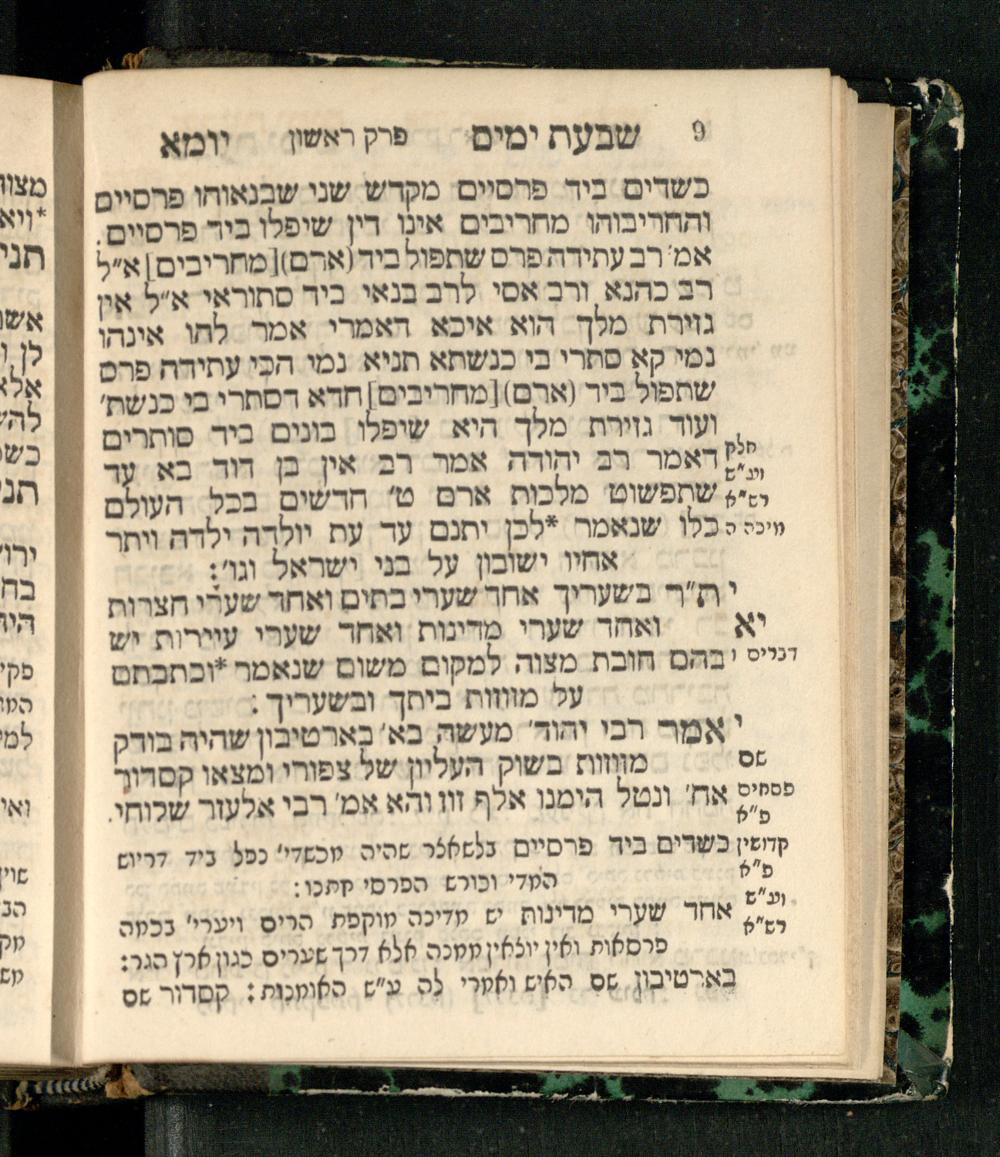 9 שבעת ימים פרק ראשון יומא
כשדים ביד פרסיים מקדש שני שבנאוהו פרסיים
והחריבוהו מחריבים אינו דין שיפלו ביד פרסיים.
אמ׳ רב עתידה פרס שתפול ביד (ארם) [מחריבים] א״ל
רב כהנא ורב אסי לרב בנאי ביד סתוראי א״ל אין
גזירת מלך הוא איכא דאמרי אמר להו אינהו
נמי קא סתרי בי כנשתא תניא נמי הכי עתידה פרס
שתפול ביד (ארם) [מחריבים] חדא דסתרי בי כנשת׳
ועוד גזירת מלך היא שיפלו בונים ביד סותרים
חלק דאמר רב יהודה אמר רב אין בן דוד בא עד
וע״ש
רש״א שתפשוט מלכות ארם ט׳ חדשים בכל העולם
מיכה ה כלו שנאמר *לכן יתנם עד עת יולדה ילדה ויתר
אחיו ישובון על בני ישראל וגו׳:
י ת״ר בשעריך אחד שערי בתים ואחד שערי חצרות
יא ואחד שערי מדינות ואחד שערי עיירות יש
דברים ו בהם חובת מצוה למקום משום שנאמר *וכתבתם
על מזוזות ביתך ובשעריך:
י אמר רבי יהוד׳ מעשה בא׳ בארטיבון שהיה בודק
שם מזוזות בשוק העליון של צפורי ומצאו קסדור
פסחים
פ״א אח׳ ונטל הימנו אלף זוז והא אמ׳ רבי אלעזר שלוחי.
קדושין כשדים ביד פרסיים בלשאצר שהיה מכשדי׳ נפל ביד דריוש
פ״א המדי וכורש הפרסי חתנו:
וע״ש
רש״א אחד שערי מדינות יש מדינה מוקפת הרים ויערי׳ בכמה
פרסאות ואין יוצאין ממנה אלא דרך שערים כגון ארץ הגר:
בארטיבון שם האיש ואמרי לה ע״ש האומנות: קסדור שם
מצוה
תני